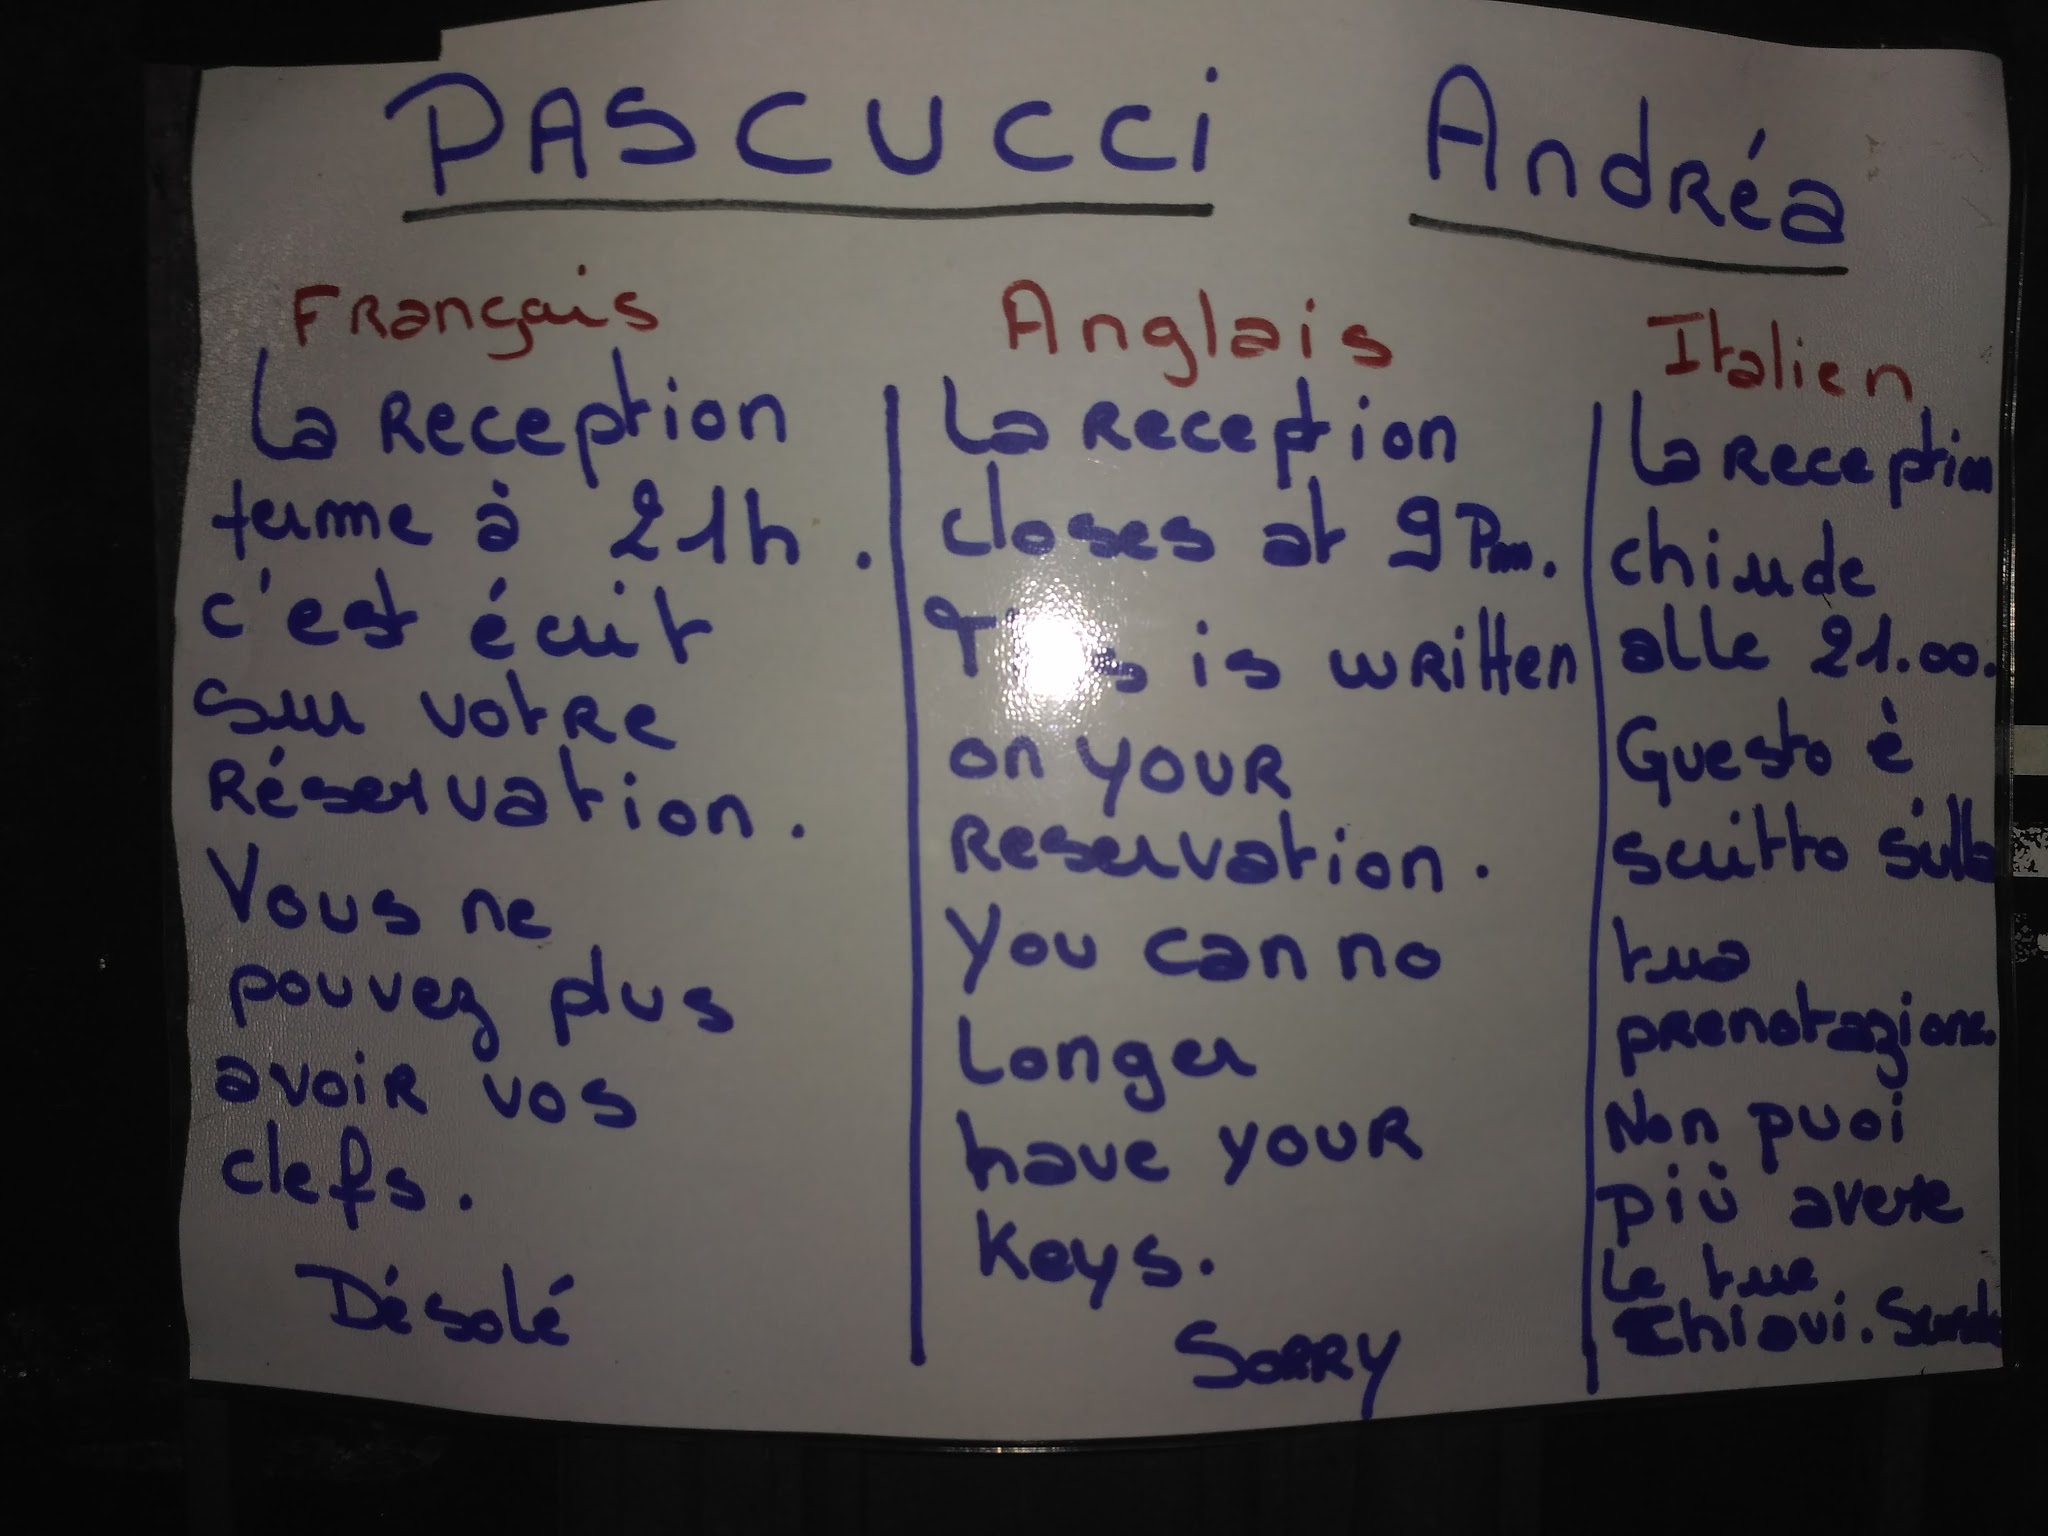 PASCUCCi Andréa
Français
La Reception
ferme à 21h.
c'est écrit
sur votre
Réservation.
Vous ne
pouvez plus
avoir vos
clefs.
Désolé
Anglais
La Reception
closes at 9Pm.
This is written
on your
Reservation.
You can no
Longer
have your
Keys.
Sorry
Italien
La Reception
chiude
alle 21.00.
Questo è
scritto sulla
tua
prenotazione.
Non puoi
più avere
le tue
chiavi.